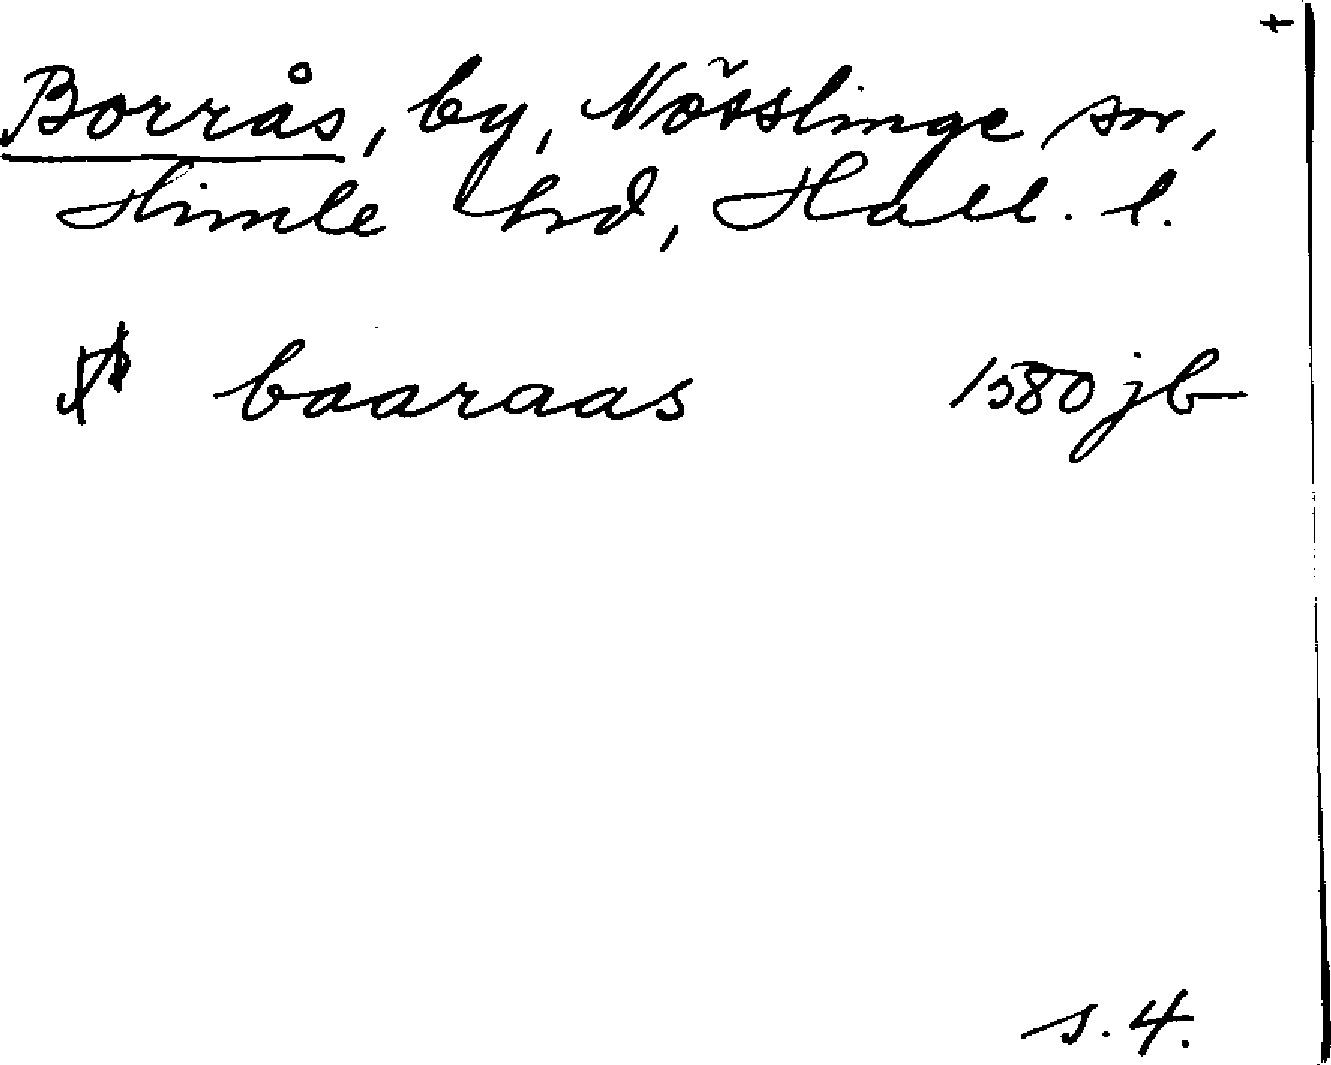 Borrås, by, Nösslinge sn,
Himle hd, Hall. l.
baaraas 1580 jb
s. 4.